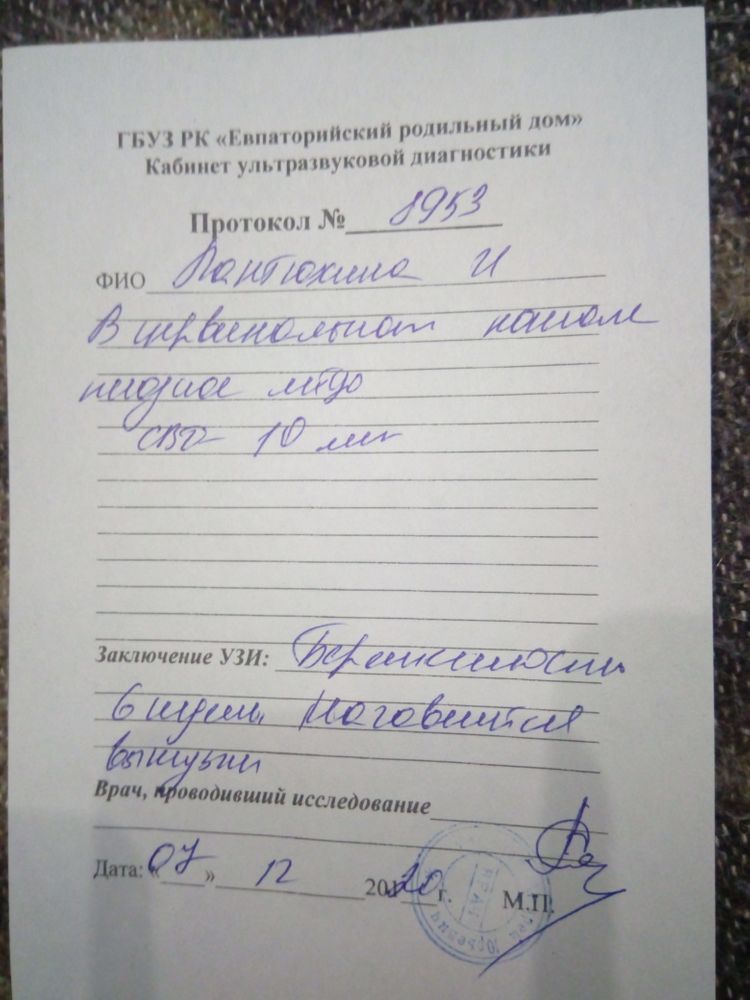 ГБУЗ РК «Евпаторийский родильный дом»
Кабинет ультразвуковой диагностики
Протокол № 8953
ФИО Пантюхина И
В цервикальном канале
плодное яйцо
СВД 10 мм
Заключение УЗИ: Беременность
6 недель
Врач, проводивший исследование
Дата: «07» 12 2020 г. М.П.
ВРАЧ